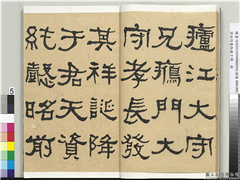 廬江大守
兄鴈門大
守孝長發
其祥誕降
于君天資
純懿昭前
5